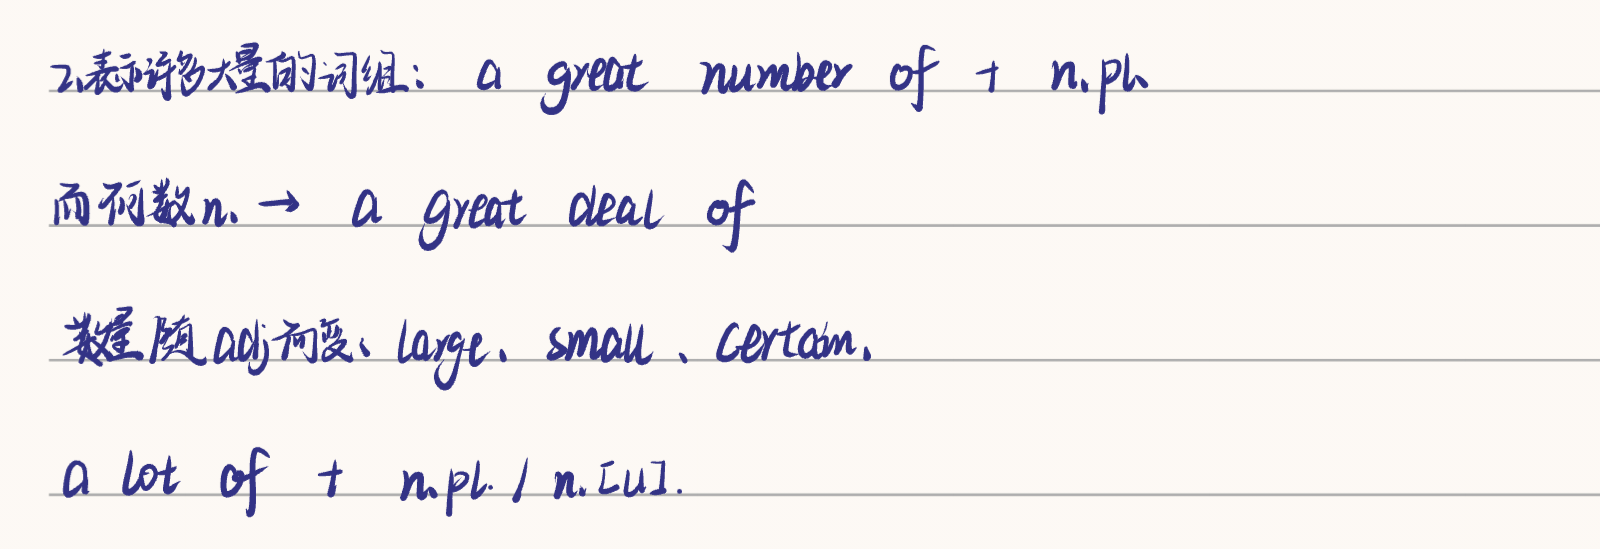 2.表示许多大量的词组: a great number of + n.pl.
而可数n. → a great deal of
数量随adj而变、large、small、certain.
a lot of + n.pl. / n.[U].